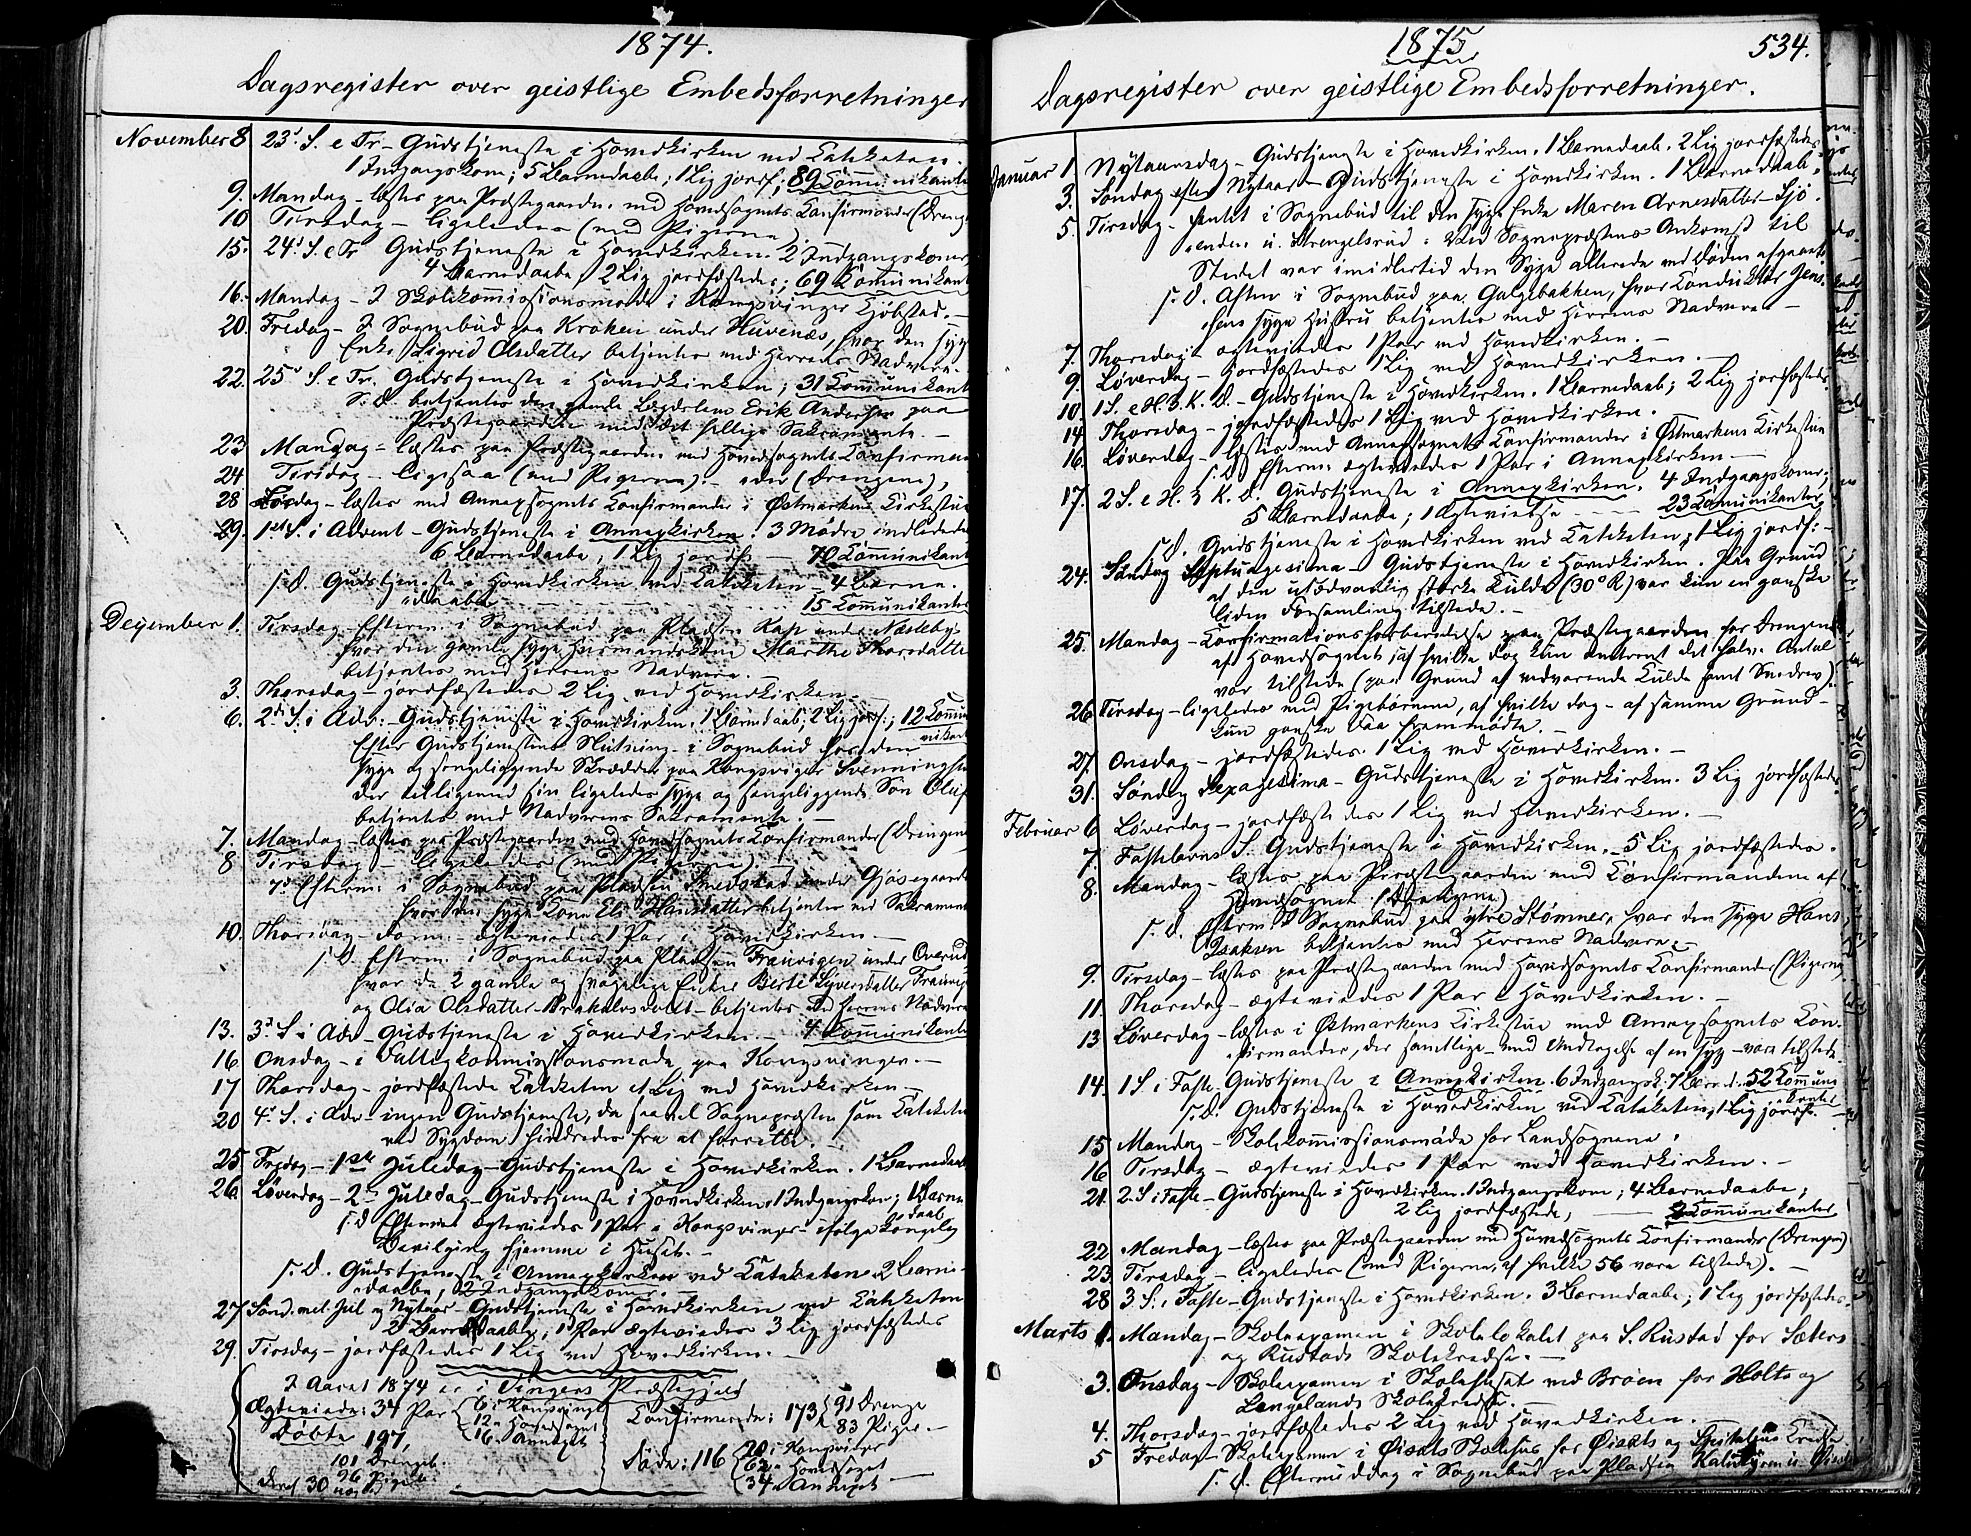 1874.
Dagsregister over geistlige Embedsforretninger
November 8 23' S. e Tr - Gudstjeneste i Hovedkirken ved Catcheten.
1 Indgangskone; 5 Barnedaabe; 1 Lig jordf; 89 Communikanter
9. Mandag - læstes paa Præstegaarden med Hovedsognets Confirmander (Dreng
10 Tirsdag - ligeledes (med Pigerne)
15. 24' S. e Tr Gudstjeneste i Hovedkirken. 2 Indgangskoner
4 Barnedaabe, 2 Lig jordfæstede; 69 Comunikant
16. Mandag - I Skolekommissionsmøde i Kongsvinger Kjøbstad. -
20. Fredag - I Sognebud paa Kroken under Huvenæs, hvor den syge
Enke Sigrid Olsdatter betjentes med Herrens Nadvere. -
22. 25' S. e Tr. Gudstjeneste i Hovedkirken; 31 Communikant
S. D. betjentes den gamle Lægdslem Erik Andersen paa
Præstegaarden med det hellige Sakramente. -
23 Mandag - læstes paa Præstegaarden med Hovedsognets Confirman
24 Tirsdag - ligesaa (med Pigerne) - (Drengene),
28 Lørdag - læstes med Annexsognets Confirmander i Østmarkens Kirkestue
29. 1ste S. i Advent - Gudstjeneste i Annexkirken. 3 Mødre indlededes
6 Barnedaabe, 1 Lig jordf. - 70 Communikant
s. D. Gudstjeneste i Hovedkirken ved Catcheten 4 Barne-
daabe 15 Communikanter
December 1. Tirsdag - Efterm. i Sognebud paa Pladsen Kap under Næsteby
hvor den gamle syge Husmandskone Marthe Thorsdatter
betjentes med Herrens Nadvere. -
3. Thorsdag - jordfæstedes 2 Lig ved Hovedkirken. -
6. 2den S. i Adv. - Gudstjeneste i Hovedkirken. 1 Barnedaab; 2 Lig jordf.; 12 Commu
nikant
Efter Gudstjenestens Slutning - i Sognebud hos den
syge og sengeliggende Skrædder paa Kongsvinger Svenningsen
der tilligemed sin ligeledes syge og sengeliggende Søn Oluf
betjentes med Nadverens Sakramente. -
7. Mandag - læstes paa Præstegaarden med Hovedsognets Confirmander (Drengene
8 Tirsdag - ligeledes (med Pigerne)
Efterm: i Sognebud paa Pladsen Smedstad under Gjøsegaarden
hvor den syge Kone Eli Hansdatter betjentes ved Sakrament
10. Thorsdag - Form. - ægteviedes 1 Par i Hovedkirken. -
s. D. Efterm. i Sognebud paa Pladsen Trauvigen under Overud
hvor de 2 gamle og svagelige Enker Berte Syversdatter
og Olia Olsdatter betjentes ved Herrens Nadvere
13. 3' S. i Adv - Gudstjeneste i Hovedkirken. - 4 Comunikanter
16. Onsdag - i Fattigkommissionsmøde paa Kongsvinger. -
17 Thorsdag - jordfæstede Catcheten et Lig ved Hovedkirken -
20 4' S. i Adv - ingen Gudstjeneste, da saavel Sognepræsten som Catchete
ved Sygdom hindredes fra at forrette.
25 Fredag - 1ste Juledag - Gudstjeneste i Hovedkirken. 1 Barnedaab
26. Løverdag - 2den Juledag - Gudstjeneste i Hovedkirken. 1 Indgangskone; 1 Barne
daab
s. D Efterm. ægteviedes 1 Par i Kongsvinger - ifølge kongelig
Bevilging hjemme i Huset. -
s. D. Gudstjeneste i Annexkirken ved Catcheten 2 Barne-
daabe, 2 Indgangskoner. -
27 Sønd. mel. Jul og Nytaar - Gudstjeneste i Hovedkirken ved Catcheten
2 Barnedaabe, 1 Par ægteviedes 3 Lig jordfæstedes
29. Tirsdag - jordfæstedes 1 Lig ved Hovedkirken. -
I Aaret 1874 er i Vingers Præstegjæld
Ægteviede: 34 Par { 6 i Kongsvinger
12 " Hovedsognet
16. " Annexet
Confirmerede: 173 { 91 Drenge
83 Piger. -
Døbte 197,
101 Drenge
96 Piger
deraf 30
Døde: 116 { 20 i Kongsvinger
62 " Hovedsognet
34 " Annexet
1875 534.
Dagsregister over geistlige Embedsforretninger.
Januar 1 Nytaarsdag - Gudstjeneste i Hovedkirken. 1 Barnedaab. 2 Lig jordfæstedes
3. Søndag efter Nytaar - Gudstjeneste i Hovedkirken. 1 Barnedaab
5. Tirsdag - hentet i Sognebud til den syge Enke Maren Arnesdatter Sjø-
enden u. Strengelsrud: Ved Sognepræstens Ankomst til
Stedet var imidlertid den Syge allerede ved Døden afgaaet.
s. D. Aften i Sognebud paa Galgebakken, hvor Konduktør Jens-
sens syge Hustru betjentes med Herrens Nadvere -
7. Thorsdag - ægteviedes 1 Par ved Hovedkirken. -
9. Løverdag - jordfæstedes 1 Lig ved Hovedkirken. -
10. 1 S. e H. 3 K. D. - Gudstjeneste i Hovedkirken. 1 Barnedaab; 2 Lig jordfæstedes
14 Thorsdag - jordfæstedes 1 Lig ved Hovedkirken.
16. Løverdag - læstes med Annexsognets Confirmander i Østmarkens Kirkestue
s. D. Efterm. ægteviedes 1 Par i Annexkirken -
17. 2 S. e H. 3 K. D. Gudstjeneste i Annexkirken. 4 Indgangskoner;
5 Barnedaabe; 1 Ægtevielse - - - 23 Comunikanter
s. D. Gudstjeneste i Hovedkirken ved Catcheten; 1 Lig jordf: -
24. Søndag Septuagesima - Gudstjeneste i Hovedkirken. Paa Grund
af den usædvanlig stærke Kulde (30° R) var kun en ganske
liden Forsamling tilstede. -
25. Mandag - Confirmationsforberedelse paa Præstegaarden for Drengene
af Hovedsognet; af hvilke dog kun omtrent det halve Antal
var tilstede (paa Grund af vedvarende Kulde samt Snedrev).
26. Tirsdag - ligeledes med Pigebørnene, af hvilke dog - af samme Grund -
kun ganske faa fremmødte. -
27. Onsdag - jordfæstedes 1 Lig ved Hovedkirken. -
31. Søndag Sexagesima - Gudstjeneste i Hovedkirken. 3 Lig jordfæstedes
Februar 6 Løverdag - jordfæstedes 1 Lig ved Hovedkirken. -
7. Fastelavns S. Gudstjeneste i Hovedkirken. - 5 Lig jordfæstedes.
8. Mandag - læstes paa Præstegaarden med Confirmanderne af
Hovedsognet (Drengene)
s. D. Efterm. i Sognebud paa ytre Stømner, hvor den syge Hans
Isaksen betjentes med Herrens Nadvere. -
9. Tirsdag - læstes paa Præstegaarden med Hovedsognets Confirmander (Pigerne
11 Thorsdag - ægteviedes 1 Par i Hovedkirken. -
13 Løverdag - læstes i Østmarkens Kirkestue med Annexsognets Con-
firmander, der samtlige - med Undtagelse af en syg - vare tilstede
14. 1 S. i Faste - Gudstjeneste i Annexkirken. 6 Indgangsk. 7 Barned. 52 Commu
nikanter
s. D. Gudstjeneste i Hovedkirken ved Catcheten, 1 Lig jordf. -
15 Mandag - Skolekommissionsmøde for Landsognene.
16 Tirsdag - ægteviedes 1 Par ved Hovedkirken. -
21. 2. S. i Faste - Gudstjeneste i Hovedkirken. 1 Indgangskone; 4 Barnedaabe;
2 Lig jordfæstede, - Communikanter
22 Mandag - læstes paa Præstegaarden med Hovedsognets Confirmander (Drengene)
23. Tirsdag - ligeledes (med Pigerne, af hvilke 56 vare tilstede). -
28 3. S. i Faste - Gudstjeneste i Hovedkirken. 3 Barnedaabe; 1 Lig jordfæstedes.
Marts 1. Mandag - Skoleexamen i Skolelokalet paa S. Rustad for Sæters
og Rustads Skolekredse. -
3. Onsdag - Skoleexamen i Skolehuset ved Broen for Holts og
Langelands Skolekredse. -
4. Thorsdag - jordfæstedes 2 Lig ved Hovedkirken. -
5 Fredag - Skoleexamen i Øiaals Skolehus for Øiaals og Kreds
s. D. Eftermiddag i Sognebud paa Pladsen